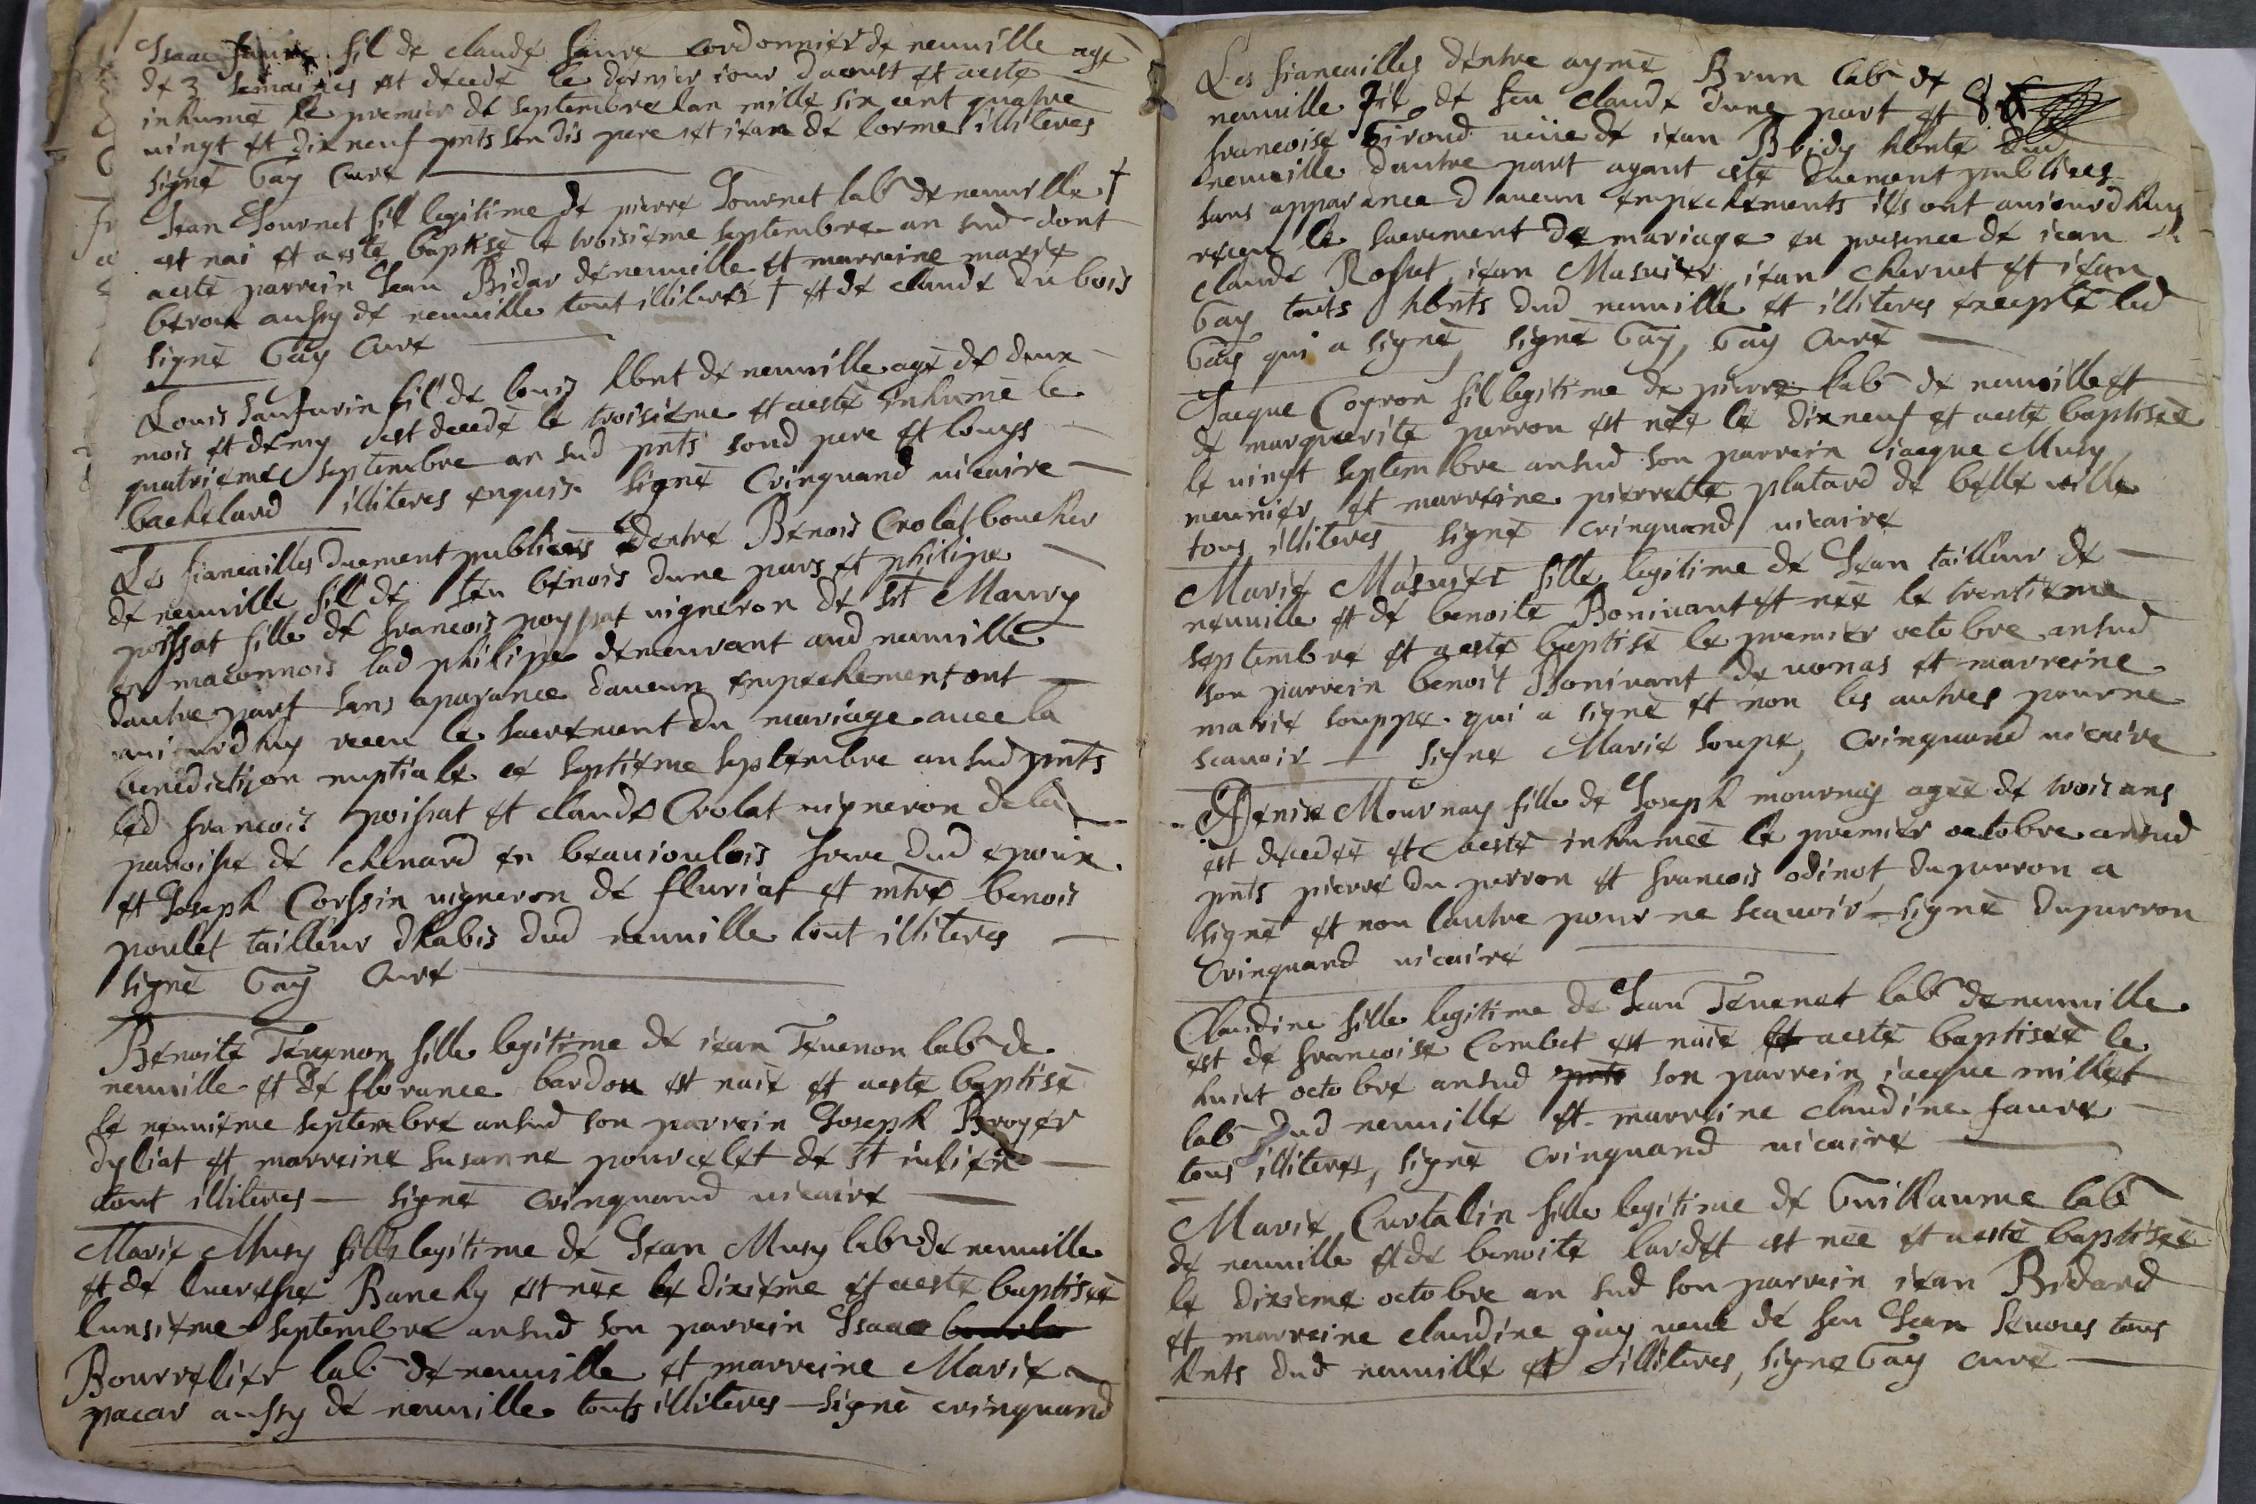 Isaac faure fil de claude faure cordonnier de neuuille agé
de 3 semaines est decedé le dernier iour daoust et aesté
inhumé le premier de septembre lan mille six cent quatre
uingt et dix neuf pnts sondis pere et iean de lorme illiteres
signé Gay Curé
Jean Journet fil legitime de pierre Journet lab. de neuuille †
est nai et aesté baptisé le troisieme septembre an sud dont
aesté parrein Jean Bidar de neuuille et marreine marie
beroux aussy de neuuille tout illiterés † et de claude du bois
signé Gay Curé
Louis Saufurin fil de louis hbnt de neuuille agé de deux
mois et demy est decedé le troisieme et aesté inhumé le
quatrieme septembre an sud pnts sond pere et louys
bachelard illiteres enquis. signé Cringuand uicaire
Les fiancailles duement publiees Dentre Benois Crolat boucher
de neuuille fil de feu benois dune pars et philipe
poissat fille de francois poyssat uigneron de sit Maury
en maconnois lad philipe demeurant aud neuuille
dautre part sans aparance daucun empechement ont
auiourdhuy receu le sacrement du mariage auec la
benediction nuptiale ce septieme septembre ansud pnts
led francois poissat et claude Crolat uigneron dela
paroisse de chenard en beauioulois frere dud epoux
et Joseph Corssin uigneron de fluriat et mtre benois
poulet tailleur dhabis dud neuuille tout illiteres
signé Gay Curé
Benoite Teuenon fille legitime de iean Teuenon lab. de
neuuille et de florance bardon est naie et aesté baptisé
le neuuieme septembre ansud son parrein Joseph Broyer
dyliat et marreine susanne pourcelet de st iulien
tout illiteres — signé cringuand uicaire
Marie Musy fille legitime de Jean Musy lab. de neuuille
et de lucresse Banchy est née le dixieme et aesté baptisée
lunsieme septembre ansud son parrein Isaac
Bourrelier lab. de neuuille et marreine Marie
pacar aussy de neuuille touts illiteres — signé cringuand
Les fiancailles dentre aymé Brun lab. de
neuuille fil de feu claude dune part et
francoise Girond ueüe de iean Bridy hbnte dud
neuuille dautre part ayant esté duement publiees
sans apparance daucun empechements ils ont auiourdhuy
receu le sacrement de mariage en presence de iean
claude Rosset, iean Masuier iean chernet et iean
Gay touts hbnts dud neuuille et illiteres excepté led
Gay qui a signé, signé Gay, Gay Curé
Jacque Coyron fil legitime de pierre lab. de neuuille et
de marguerite perron est née le dixneuf et aesté baptisée
le uingt septembre ansud son parrein iacque Musy
meunier et marreine pierrette platard de belle uille
tous illiteres signé cringuand uicaire
Marie Masuier fille legitime de Jean tailleur de
neuuille et de benoite Boniuant est née le trentieme
septembre et aesté baptisé le premier octobre ansud
son parrein benoit Boniuant de uonas et marreine
marie souppe qui a signé et non les autres pour ne
scauoir — signé Marie soupe, cringuand uicaire
Denise Mournay fille de Joseph mournay agée de trois ans
est decedée et aesté inhumée le premier octobre ansud
pnts pierre du perron et francois odinot, duperron a
signé et non lautre pour ne scauoir — signé duperron
Cringuand uicaire
Claudine fille legitime de Jean Teuenet lab. de neuuille
est de francoise Combet est naie et aesté baptisée le
huict octobre ansud pnts son parrein iacque millet
lab. dud neuuille et marreine claudine faure
tous illiteres, signé cringuand uicaire
Marie Curtalin fille legitime de Guillaume lab.
de neuuille et de benoite lardet est née et aesté baptisée
le dixieme octobre an sud son parrein iean Bidard
et marreine claudine gay ueue de feu Jean seuoues tous
hbnts dud neuuille et illiteres, signé Gay curé